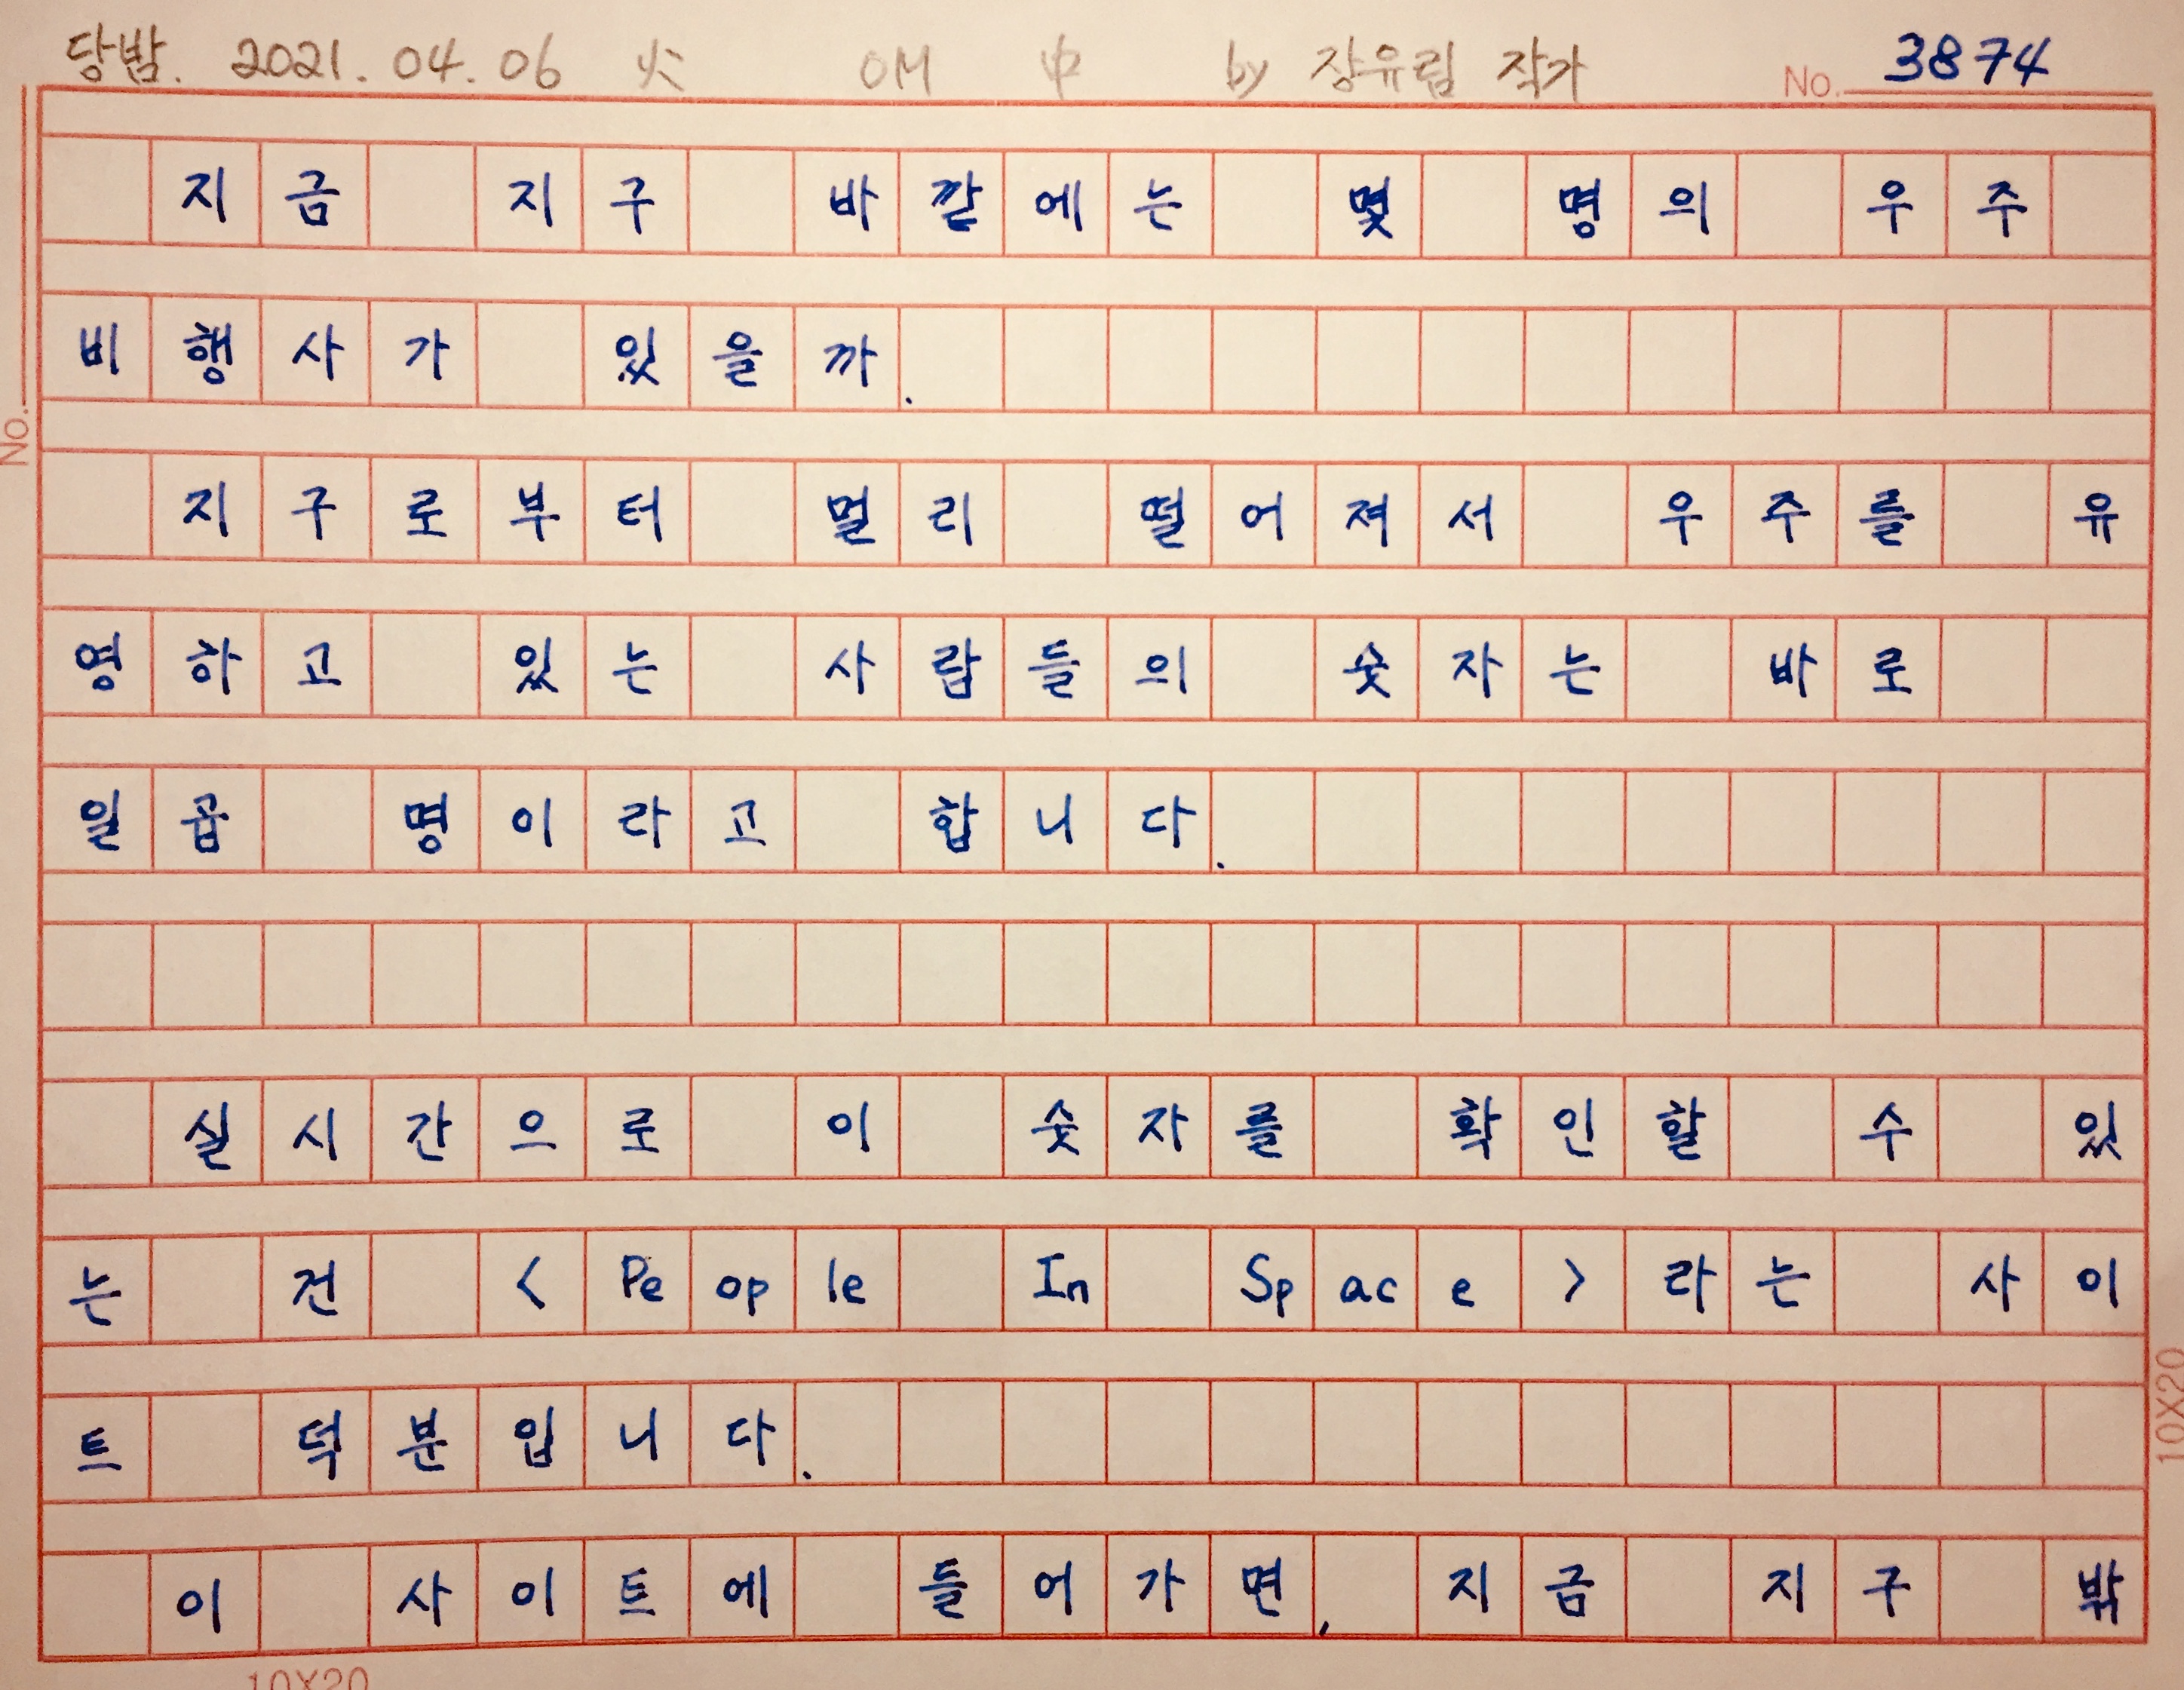 당밤. 2021.04.06 火 OM 中 by 장유림 작가 No. 3874
지금 지구 바깥에는 몇 명의 우주
비행사가 있을까.
No.
지구로부터 멀리 떨어져서 우주를 유
영하고 있는 사람들의 숫자는 바로
일곱 명이라고 합니다.
실시간으로 이 숫자를 확인할 수 있
는 건 <People In Space>라는 사이
트 덕분입니다.
10X20
이 사이트에 들어가면, 지금 지구 밖
10X20